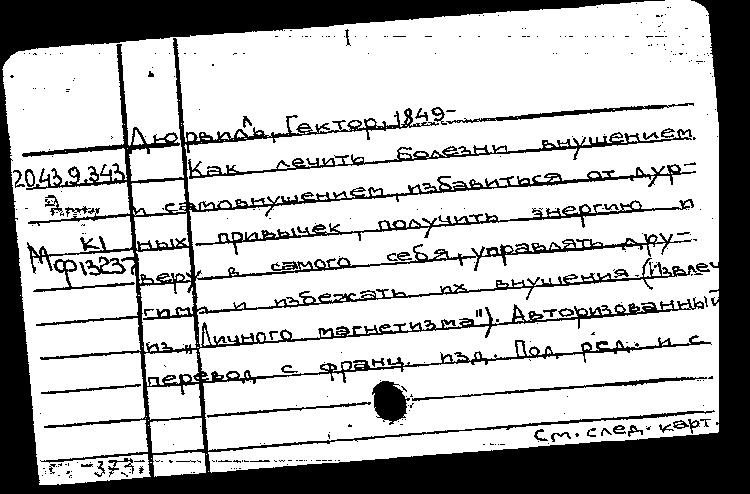 Дюрвиль, Гектор, 1849-
20.43.9.343 Как лечить болезни внушением
и самовнушением, избавиться от дур=
К1 ных привычек, получить энергию и
Мф13237 веру в самого себя, управлять дру=
гими и избежать их внушения. (Извлеч
из „Личного магнетизма"). Авторизованный
перевод с франц. изд. Под ред. и с
См. след. карт.
-373.